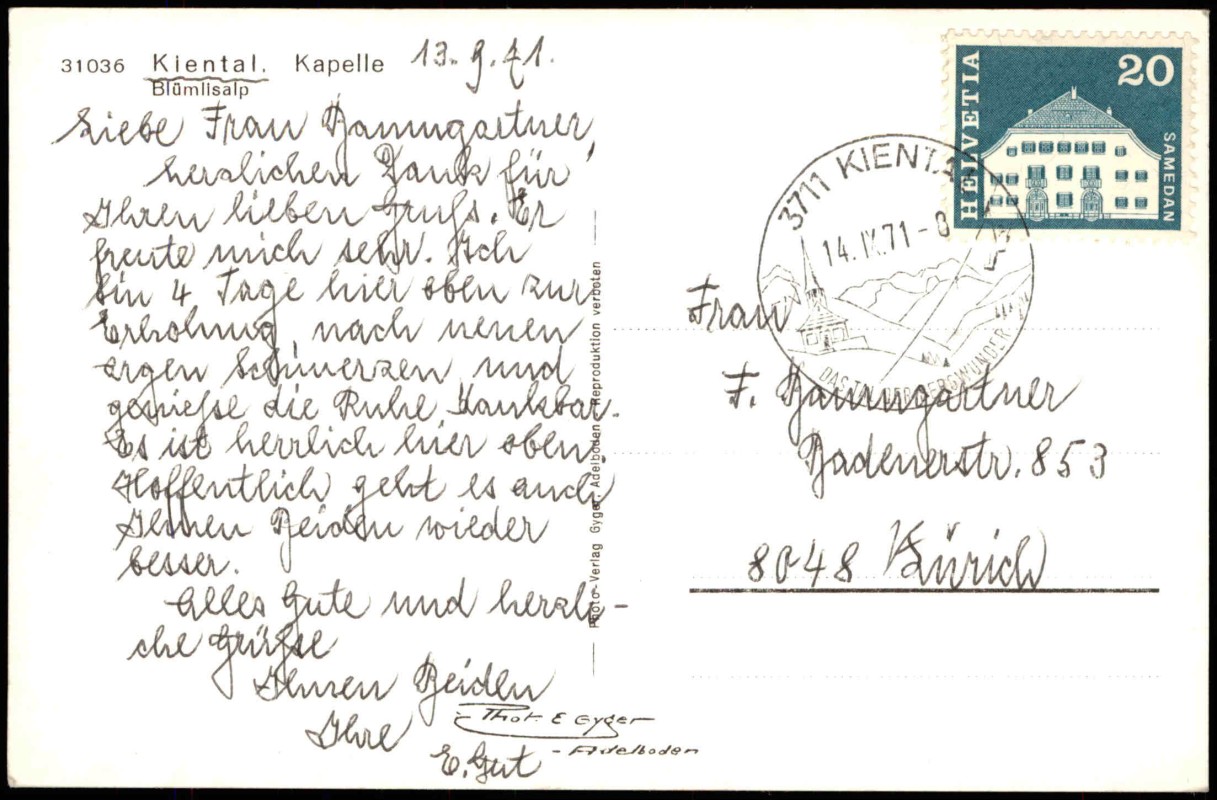 31036 Kiental. Kapelle 13.9.71.
Blümlisalp
Liebe Frau Baumgartner,
herzlichen Dank für
Ihren lieben Gruss. Er
freute mich sehr. Ich
bin 4 Tage hier oben zur
Erholung, nach neuen
argen Schmerzen und
geniesse die Ruhe dankbar.
Es ist herrlich hier oben.
Hoffentlich geht es auch
Ihnen Beiden wieder
besser.
Alles Gute und herzli-
che Grüsse
Ihnen Beiden
Ihre
E. Gut
Phot. E Gyger
- Adelboden
Photo-Verlag Gyger, Adelboden Reproduktion verboten
HELVETIA
20
SAMEDAN
3711 KIENTAL
14.IX.71-8
DAS TAL DER BERGWUNDER
Frau
F. Baumgartner
Badenerstr. 853
8048 Zürich